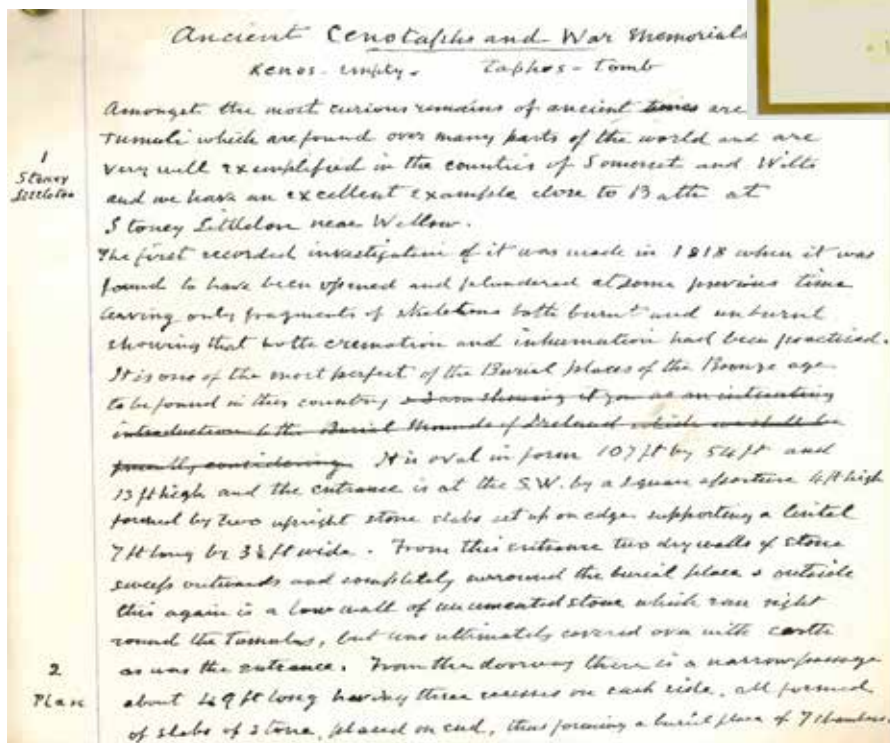 Ancient Cenotaphs and War Memorials
Kenos - empty. Taphos - Tomb
Amongst the most curious remains of ancient times are
Tumuli which are found over many parts of the world and are
1
very well exemplified in the counties of Somerset and Wilts
Stoney Littleton
and we have an excellent example close to Bath at
Stoney Littleton near Wellow.
The first recorded investigation of it was made in 1818 when it was
found to have been opened and plundered at some previous time
leaving only fragments of skeletons both burnt and unburnt
showing that both cremation and inhumation had been practised.
It is one of the most perfect of the Burial places of the Bronze age
to be found in this country & I am showing it you as an interesting
introduction to the Burial Mounds of Ireland which we shall be
presently considering. It is oval in form 107 ft by 54 ft and
13 ft high and the entrance is at the S.W. by a square aperture 4 ft high
formed by two upright stone slabs set up on edge supporting a lintel
7 ft long by 3½ ft wide. From this entrance two dry walls of stone
sweep outwards and completely surround the burial place & outside
this again is a low wall of uncemented stone which ran right
round the Tumulus, but was ultimately covered over with earth
2
as was the entrance. From the doorway there is a narrow passage
Plan
about 49 ft long having three recesses on each side, all formed
of slabs of stone, placed on end, thus forming a burial place of 7 chambers.